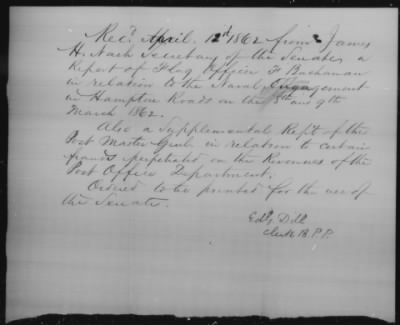 Rec'd April. 12d 1862 from James
H. Nash Secretary of the Senate, a
Report of Flag Officer F. Buchanan
in relation to the Naval Engagement
in Hampton Roads on the 8th and 9th
March 1862.
Also a Supplemental Rept of the
Post Master Genl. in relation to certain
frauds perpetrated on the Revenues of the
Post Office Department.
Ordered to be printed for the use of
the Senate.
Clerk B.P.P.